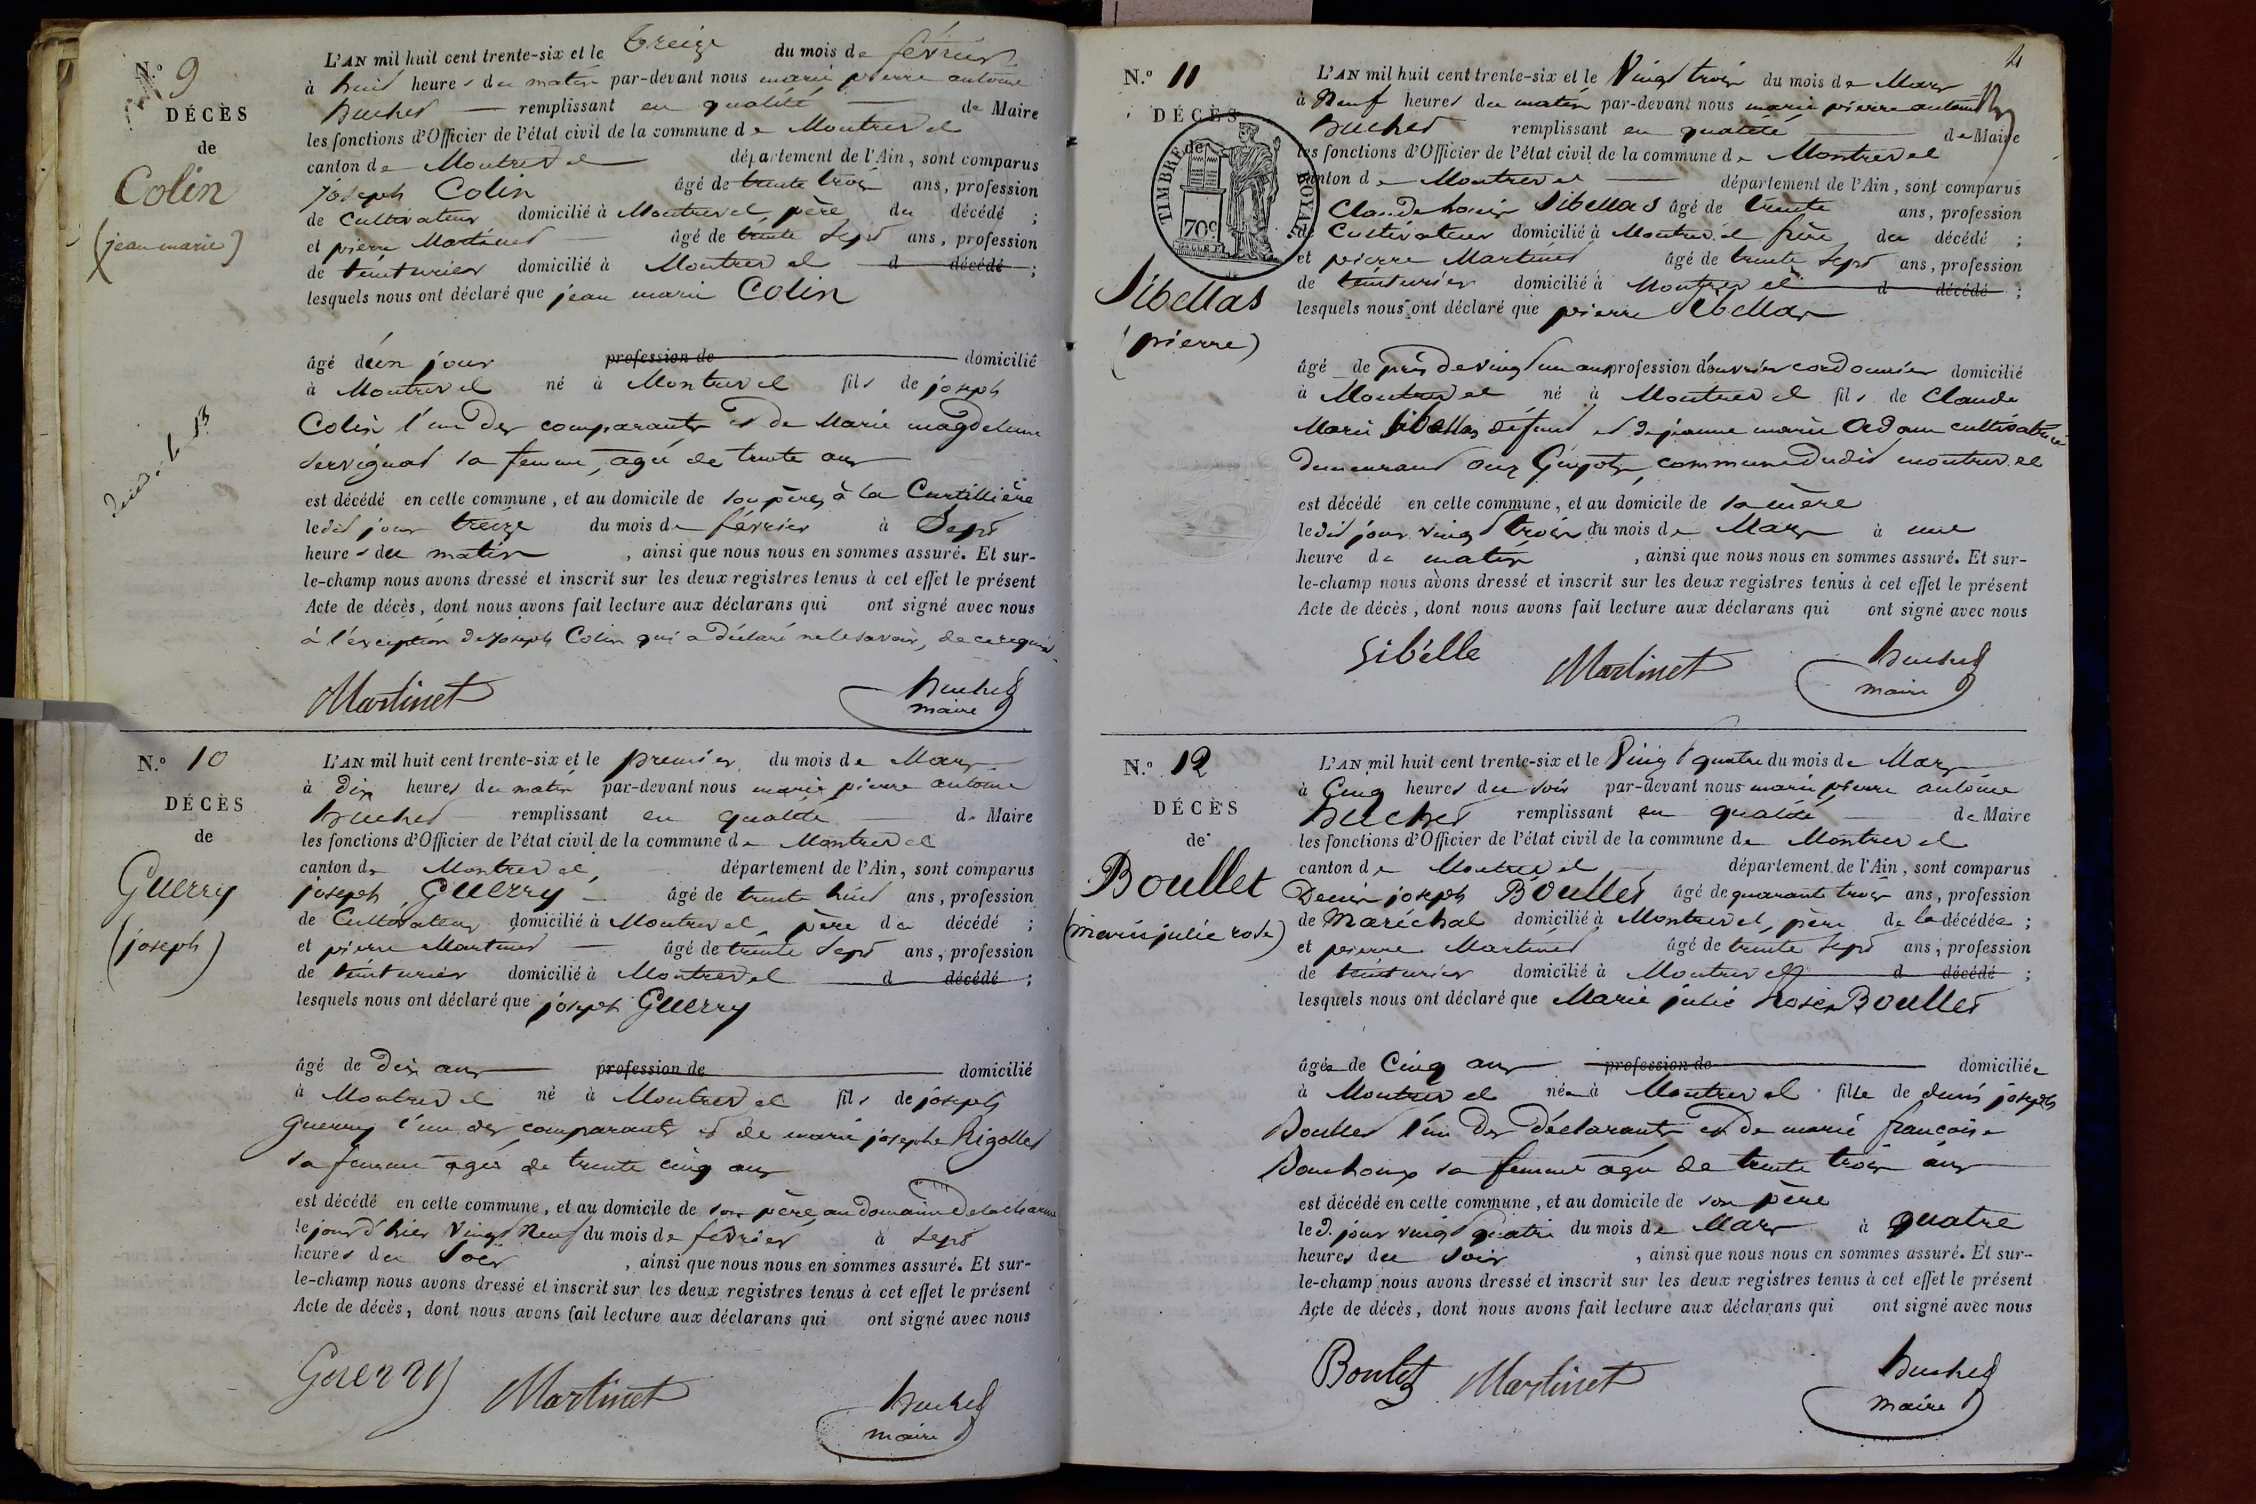 N.º 9
DÉCÈS
de
Colin
(jean marie)
L'AN mil huit cent trente-six et le treize du mois de février
à huit heures du matin par-devant nous marie pierre antoine
huchet remplissant en qualité de Maire
les fonctions d'Officier de l'état civil de la commune de Montrevel
canton de Montrevel département de l'Ain, sont comparus
joseph Colin âgé de trente trois ans, profession
de Cultivateur domicilié à Montrevel, père du décédé ;
et pierre Martinet âgé de trente sept ans, profession
de teinturier domicilié à Montrevel d décédé ;
lesquels nous ont déclaré que jean marie Colin
âgé d'un jour profession de domicilié
à Montrevel né à Montrevel fils de joseph
Colin l'un des comparants et de Marie magdeleine
Servignat sa femme, agée de trente ans
est décédé en cette commune, et au domicile de son père, à la Curtillière
ledit jour treize du mois de février à Sept
heures du matin, ainsi que nous nous en sommes assuré. Et sur-
le-champ nous avons dressé et inscrit sur les deux registres tenus à cet effet le présent
Acte de décès, dont nous avons fait lecture aux déclarans qui ont signé avec nous
à l'exception de joseph Colin qui a déclaré ne le savoir, de ce requis
Martinet huchet
maire
N.º 10
DÉCÈS
de
Guerry
(joseph)
L'AN mil huit cent trente-six et le premier du mois de Mars
à dix heures du matin par-devant nous marie pierre antoine
huchet remplissant en qualité de Maire
les fonctions d'Officier de l'état civil de la commune de Montrevel
canton de Montrevel, département de l'Ain, sont comparus
joseph Guerry âgé de trente huit ans, profession
de Cultivateur domicilié à Montrevel père du décédé ;
et pierre Martinet âgé de trente sept ans, profession
de teinturier domicilié à Montrevel d décédé ;
lesquels nous ont déclaré que joseph Guerry
âgé de dix ans profession de domicilié
à Montrevel né à Montrevel fils de joseph
Guerry l'un des comparants et de marie josephe Rigollet
sa femme agée de trente cinq ans
est décédé en cette commune, et au domicile de son père, au domaine de la charme
le jour d'hier vingt neuf du mois de février à sept
heures du Soir, ainsi que nous nous en sommes assuré. Et sur-
le-champ nous avons dressé et inscrit sur les deux registres tenus à cet effet le présent
Acte de décès, dont nous avons fait lecture aux déclarans qui ont signé avec nous
Guerry Martinet huchet
maire
4
N.º 11
DÉCÈS
de
TIMBRE ROYAL
70c
Sibellas
(pierre)
L'AN mil huit cent trente-six et le Vingt trois du mois de Mars
à Neuf heures du matin par-devant nous marie pierre antoine
huchet remplissant en qualité de Maire
les fonctions d'Officier de l'état civil de la commune de Montrevel
canton de Montrevel département de l'Ain, sont comparus
Claude Sibellas âgé de trente ans, profession
de Cultivateur domicilié à Montrevel frère du décédé ;
et pierre Martinet âgé de trente sept ans, profession
de teinturier domicilié à Montrevel d décédé ;
lesquels nous ont déclaré que pierre Sibellas
âgé de près de vingt un ans profession d'ouvrier cordonnier domicilié
à Montrevel né à Montrevel fils de Claude
Marie Sibellas défunt et de jeanne marie Adam cultivatrice
demeurant aux Guyots, commune dudit montrevel
est décédé en cette commune, et au domicile de sa mère
ledit jour vingt trois du mois de Mars à une
heure du matin, ainsi que nous nous en sommes assuré. Et sur-
le-champ nous avons dressé et inscrit sur les deux registres tenus à cet effet le présent
Acte de décès, dont nous avons fait lecture aux déclarans qui ont signé avec nous
Sibelle Martinet huchet
maire
N.º 12
DÉCÈS
de
Boullet
(marie julie rose)
L'AN mil huit cent trente-six et le Vingt quatre du mois de Mars
à Cinq heures du soir par-devant nous marie pierre antoine
huchet remplissant en qualité de Maire
les fonctions d'Officier de l'état civil de la commune de Montrevel
canton de Montrevel département de l'Ain, sont comparus
Denis joseph Boullet âgé de quarante trois ans, profession
de Maréchal domicilié à Montrevel, père de la décédée ;
et pierre Martinet âgé de trente sept ans, profession
de teinturier domicilié à Montrevel d décédé ;
lesquels nous ont déclaré que Marie julie Rose Boullet
âgée de Cinq ans profession de domiciliée
à Montrevel née à Montrevel fille de denis joseph
Boullet l'un des déclarants et de marie françoise
Bouchoux sa femme agée de trente trois ans
est décédé en cette commune, et au domicile de son père
le d. jour vingt quatre du mois de Mars à quatre
heures du soir, ainsi que nous nous en sommes assuré. Et sur-
le-champ nous avons dressé et inscrit sur les deux registres tenus à cet effet le présent
Acte de décès, dont nous avons fait lecture aux déclarans qui ont signé avec nous
Boulet Martinet huchet
maire